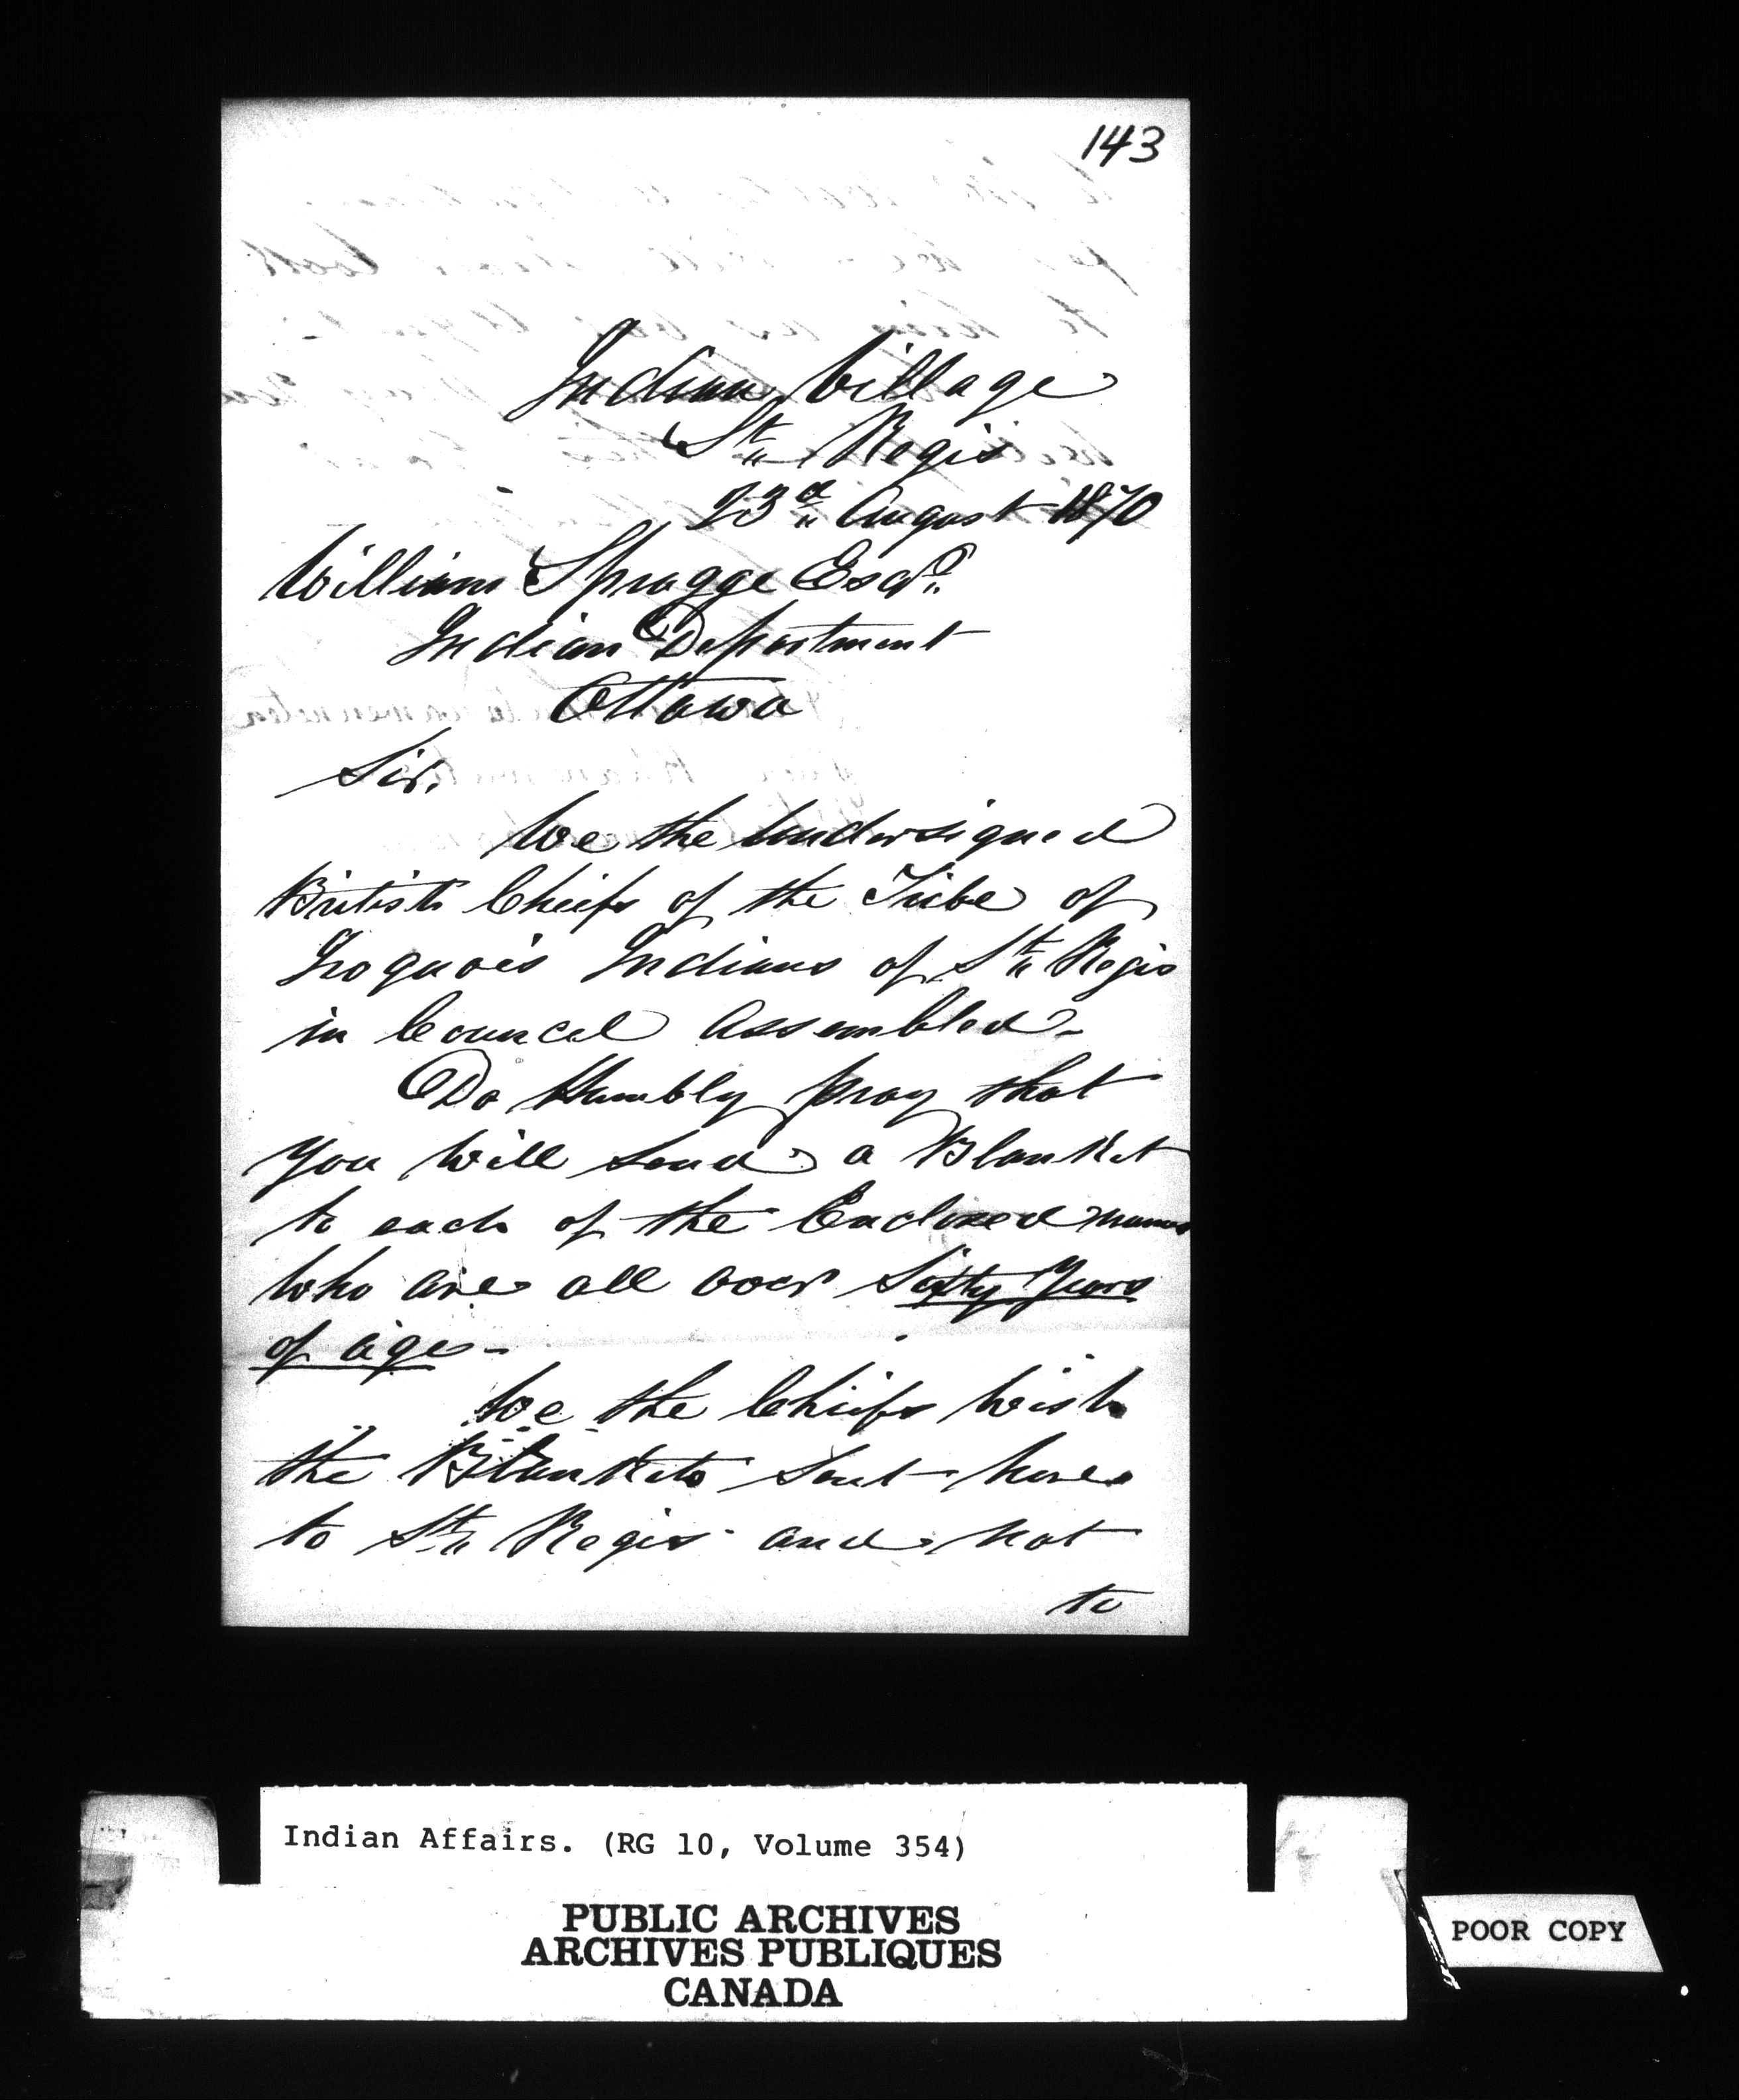 143
Indian Village
St. Regis
23d August 1870
William Spragge Esqr.
Indian Department
Ottawa
Sir.
We the Undersigned
British Chiefs of the Tribe of
Iroquois Indians of St. Regis
in Council Assembled-
Do Humbly pray that
you Will send a Blanket
to each of the Enclosed names
who are all over Sixty Years
of age-
We the Chiefs Wish
the Blankets Sent here
to St. Regis and not
to
Indian Affairs. (RG 10, Volume 354)
PUBLIC ARCHIVES
ARCHIVES PUBLIQUES
CANADA
POOR COPY